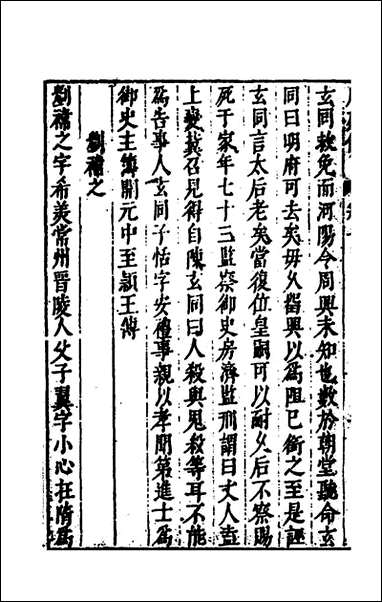 玄同救免而河陽令周興未知也數於朝堂聽命玄
同曰明府可去矣毋久留興以為阻己銜之至是誣
玄同言太后老矣當復位皇嗣可以耐久后不察賜
死于家年七十三監察御史房濟監刑謂曰丈人盍
上變冀召見得自陳玄同曰人殺與鬼殺等耳不能
為告事人玄同子恬字安禮事親以孝聞第進士為
御史主簿開元中至潁王傅
劉禕之
劉禕之字希美常州晉陵人父子翼字小心在隋為